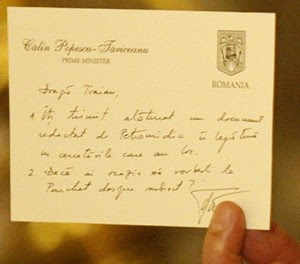 Călin Popescu-Tăriceanu
PRIME MINISTER
ROMANIA
Dragă Traian,
1. Îți trimit alăturat un document
redactat de Petromidia în legătură
cu cercetările care au loc.
2. Dacă ai ocazia să vorbești la
Parchet despre subiect?